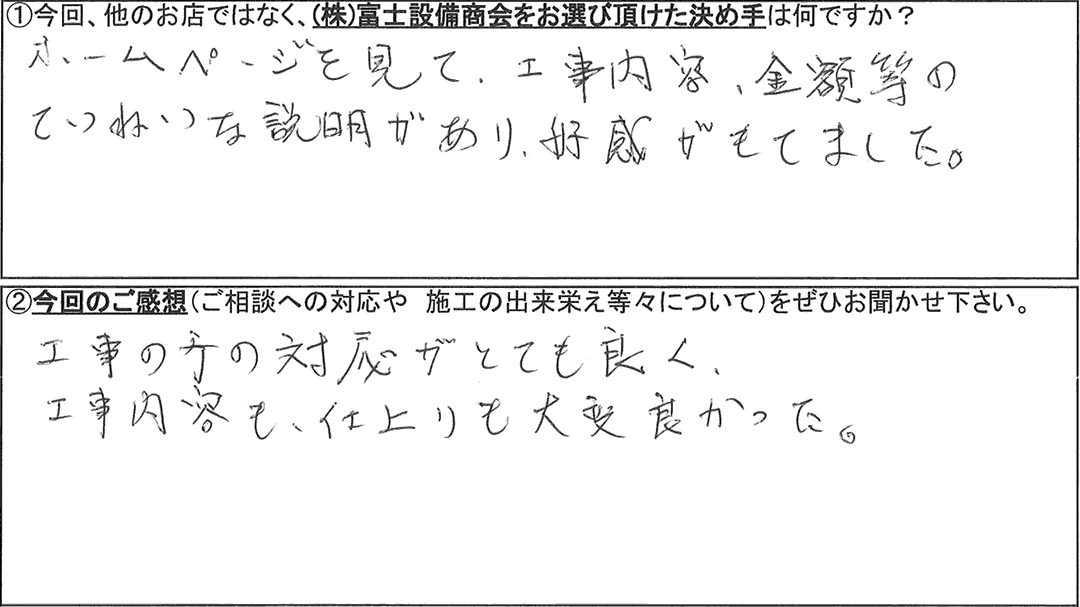 ①今回、他のお店ではなく、(株)富士設備商会をお選び頂けた決め手は何ですか？
ホームページを見て、工事内容、金額等の
ていねいな説明があり、好感がもてました。
②今回のご感想(ご相談への対応や 施工の出来栄え等々について)をぜひお聞かせ下さい。
工事の方の対応がとても良く、
工事内容も、仕上りも大変良かった。